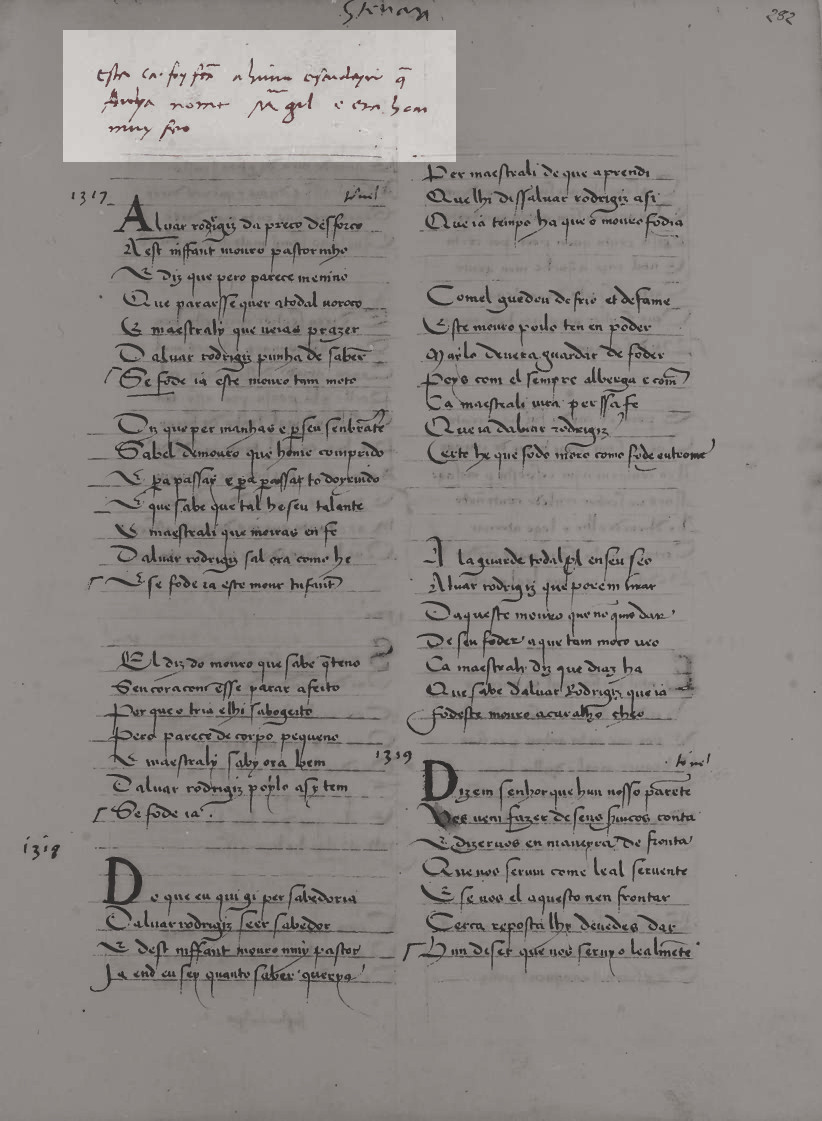 Stevan
282
Esta ca. foy fca a huum escudeyro q̃
avya nome Mͫ gil e era hom
muy feo
1317
tornel
Alvar rodrigiz da preco desforco
A est inffant mouro pastorinho
E diz que pero parece menino
Que pararsse quer atodal uoroco
E maestraly que ueias prazer
Daluar rodrigiz punha de saber
Se fode ia este mouro tam moto
Diz que per manhas e per seu senbrãte
Sabel demouro que home comprido
E pa passar e pa passar
E que sabe que tal he seu talante
E maestrali que moiras en fe
Daluar rodrigiz sal ora como he
E se fode ia este mour infant
El diz do mouro que sabe q̃ teno
Sen coracon esse parar afeito
Por que o tria elhi sabogeito
Pero parece de corpo pequeno
E maestraly saby ora bem
Daluar rodrigiz poylo asy tem
Se fode ia.
1318
Do que eu quigi per sabedoria
Daluar rodrigiz seer sabedor
E dest inffant mouro muy pastor
Ja end eu sey quanto saber querya
Per maestrali de que aprendi
Que lhi diss aluar rodrigiz asi
Que ia tempo ha que o mouro fodia
Comel guedou de frio et de fame
Este mouro poilo ten en poder
Maylo deuera guardar de foder
Poys com el sempre alberga e com̃
Ca maestrali iura per ssa fe
Que ia daluar rodrigiz
Certo he que fode mouro como fode outrome
Alaguarde todal en seu seo
Aluar rodrigiz que porem tirar
Daqueste mouro que no quis dar
De seu foder aque tam moco ueo
Ca maestrali diz que diaz ha
Que sabe daluar Rodrigiz que ia
fodeste mouro acaralho cheo
1319
tornel
Dizem senhor que hun uosso parẽte
Uos ueni fazer de seus seruicos conta
E dizeruos en maneyra de fronta
Que uos seruiu come leal seruente
E se uos el aquesto uen frontar
Certa reposta lhy deuedes dar
Hun diser que uos seruyo lealmẽte